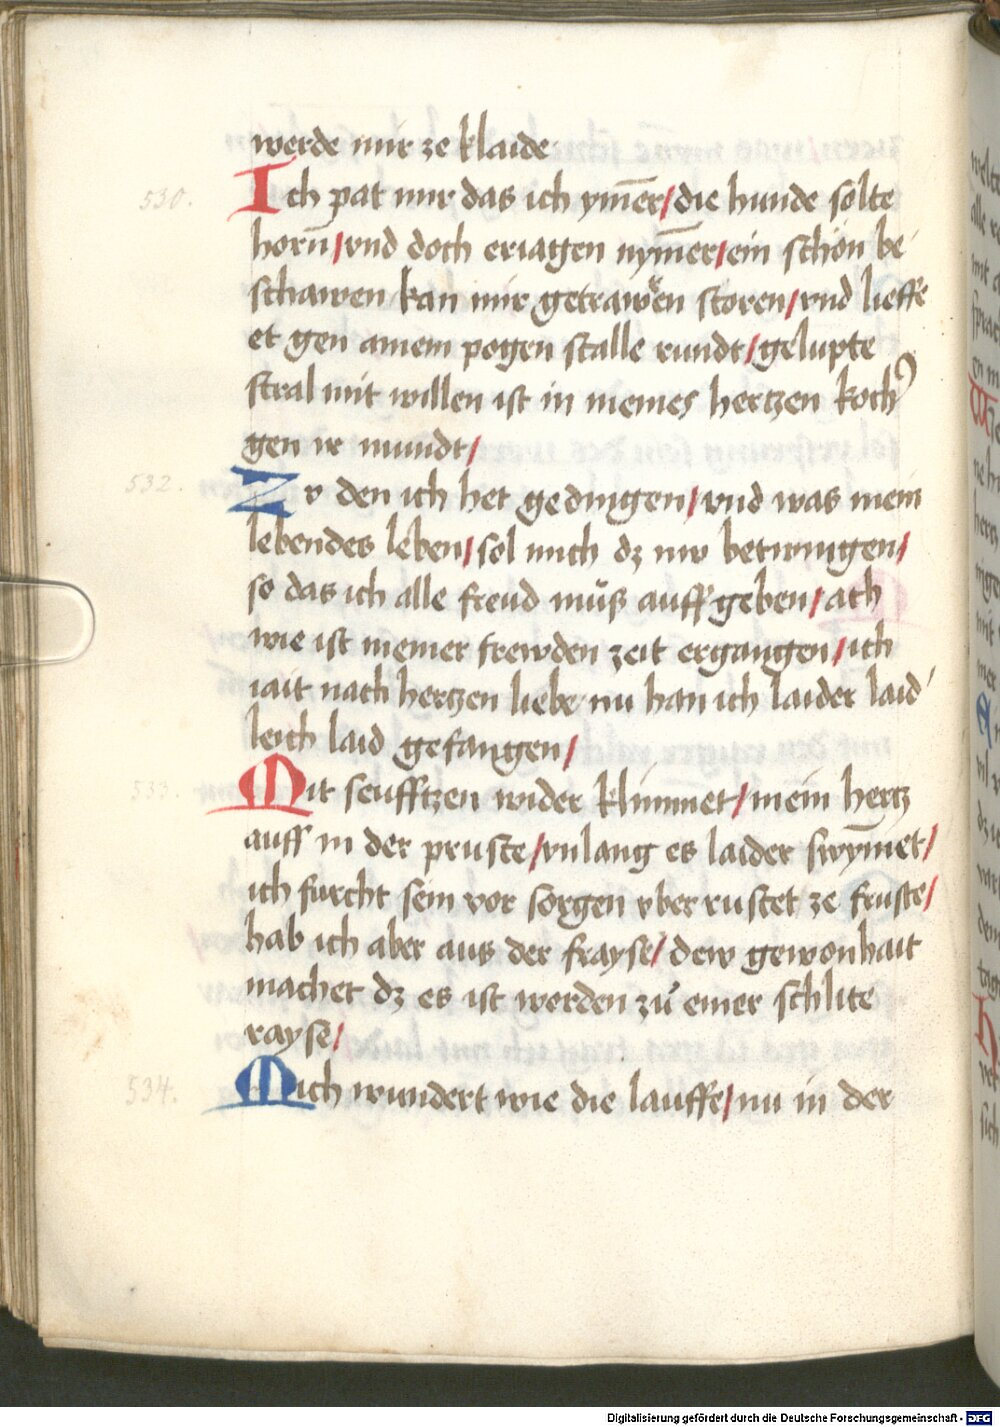 werde mir ze klaide
530.
Ich pat mir das ich ym̄er/die hunde solte
horn̄/vnd doch eriagen nym̄er/ein schön be
schawen kan mir getrawẽn storen/vnd lieffe
et gen ainem pogen stalle rundt/gelupte
stral mit willen ist in meines hertzen koch᾽
gen ir mundt/
532.
Zv den ich het gedingen/vnd was mein
lebendes leben/sol mich dz nw betwingen/
so das ich alle freud můs auff geben/ach
wie ist meiner frewden zeit ergangen/ich
iait nach hertzen liebe nu han ich laider laid
leich laid gefangen/
533.
Mit seufftzen wider klimmet/mein hertz
auff in der pruste/vnlang es laider swym̄et/
ich furcht sein vor sorgen vber rustet ze fruste/
hab ich aber aus der frayse/dew gewonhait
machet dz es ist worden zů einer schlite
rayse/
534.
Mich wundert wie die lauffe/nu in der
Digitalisierung gefördert durch die Deutsche Forschungsgemeinschaft - DFG